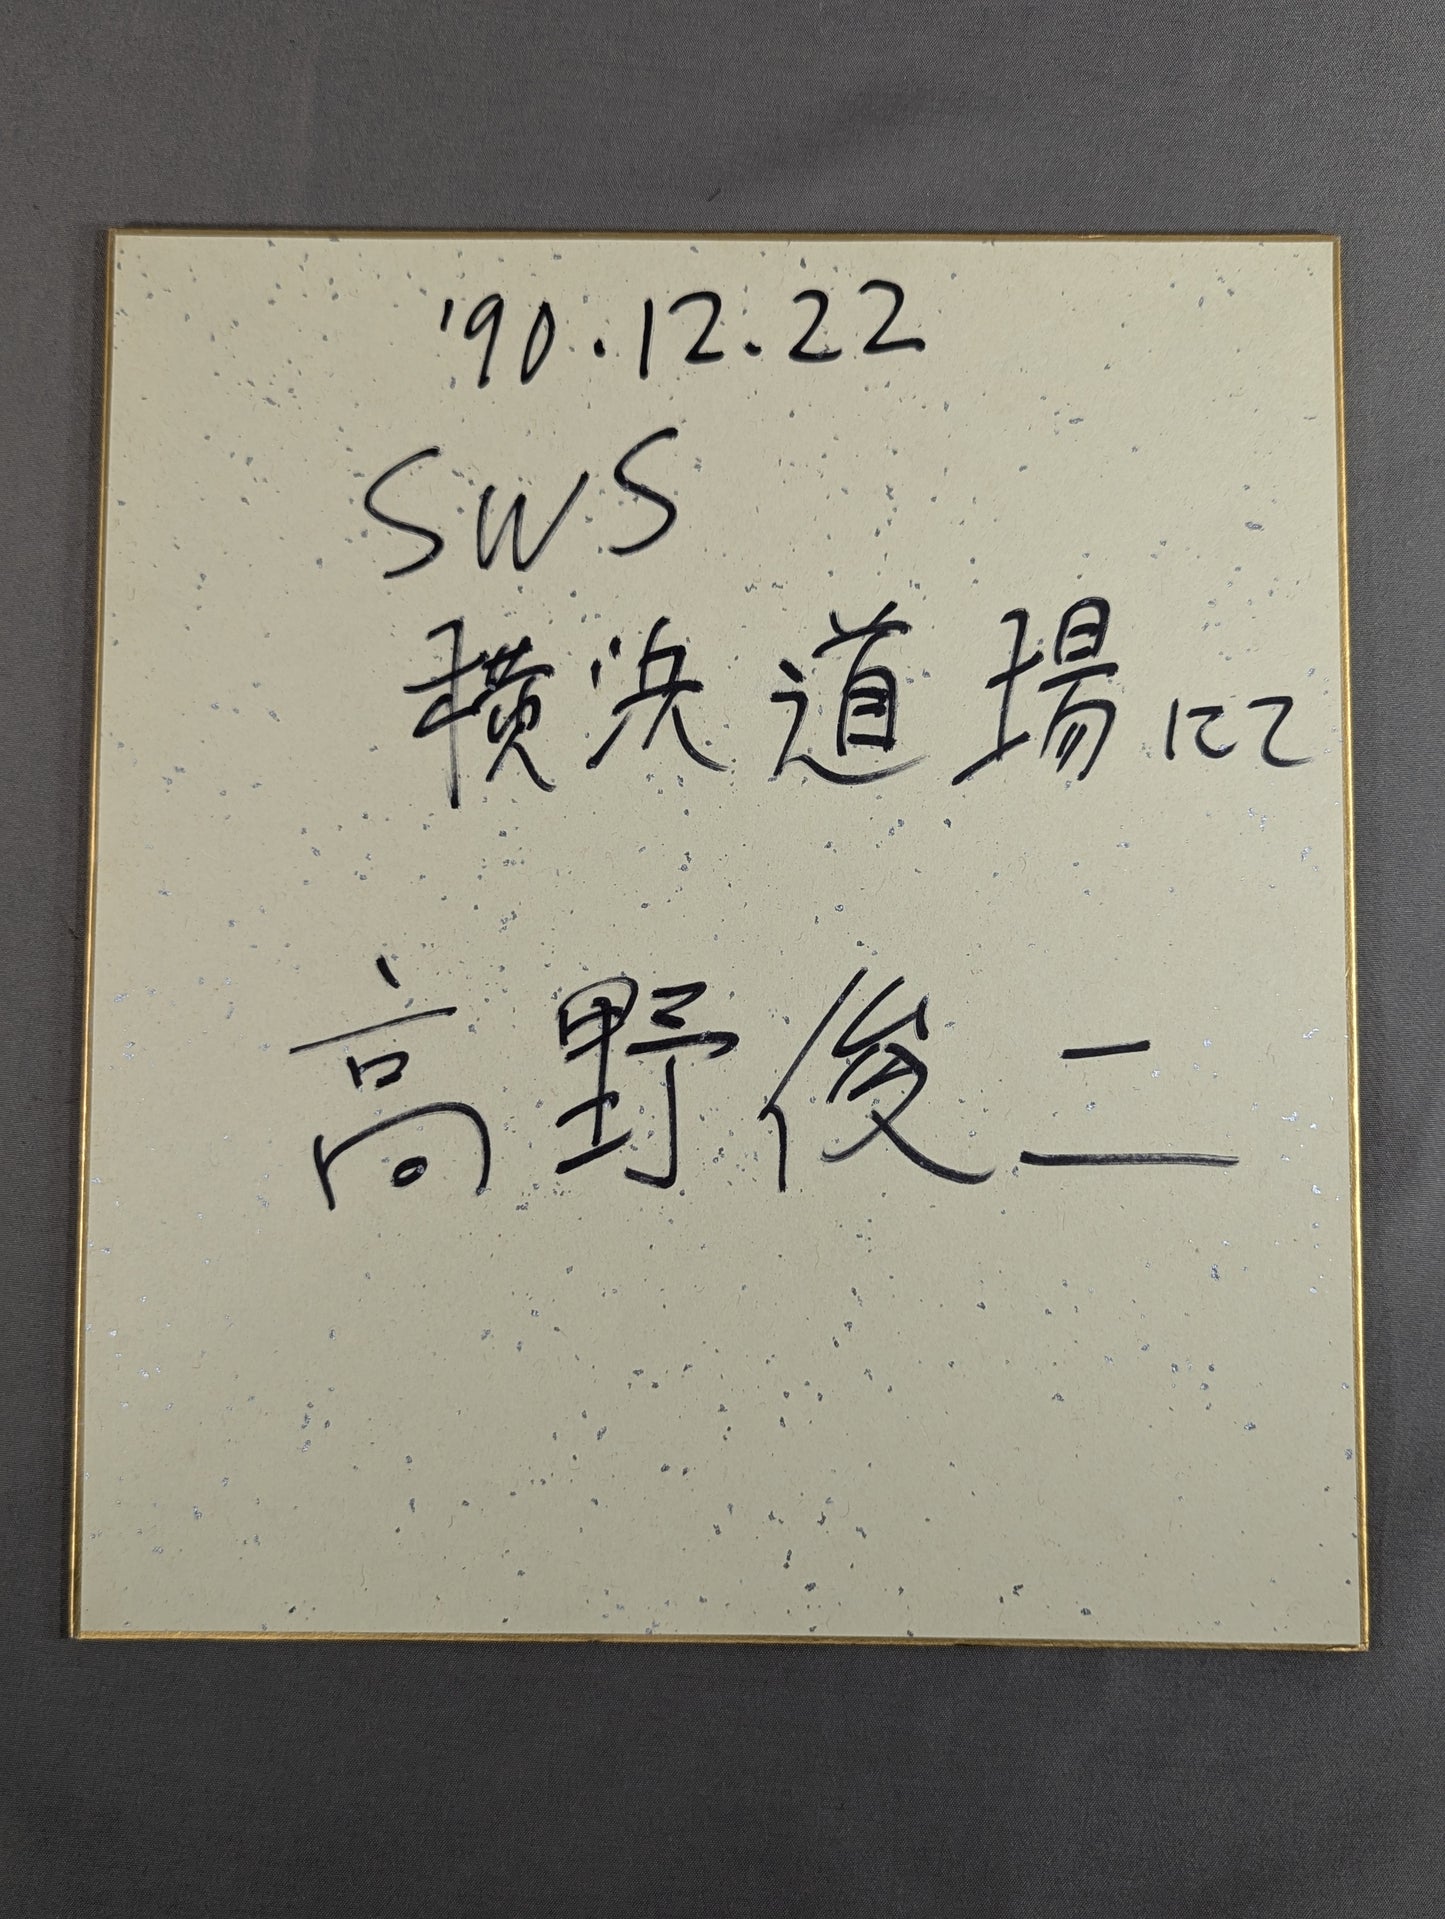 '90.12.22
SWS
横浜道場にて
高野俊二